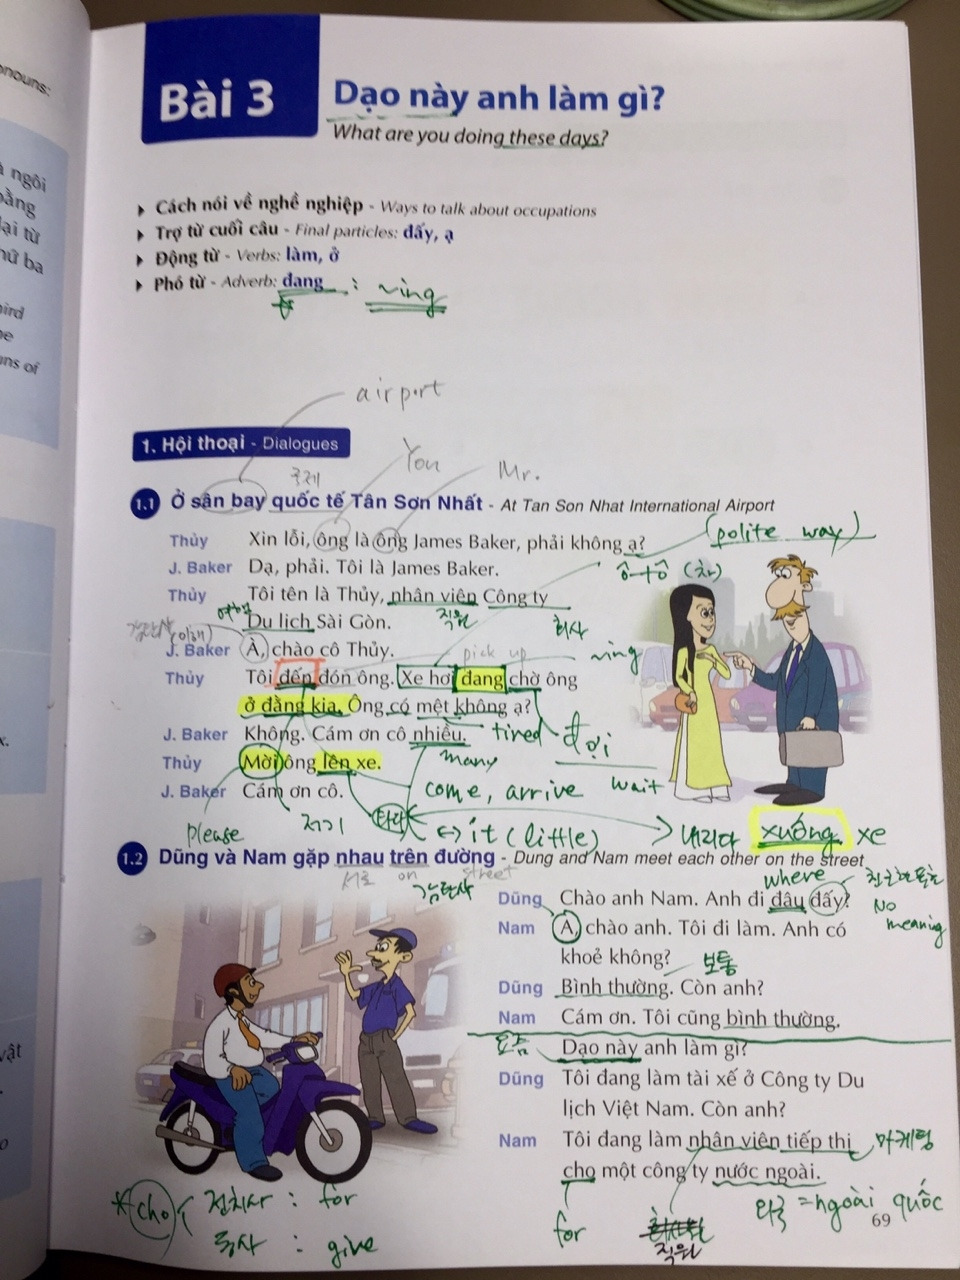 onouns:
à ngôi
bằng
lại từ
hứ ba
hird
ns of
x.
vật
Bài 3
Dạo này anh làm gì?
What are you doing these days?
Cách nói về nghề nghiệp - Ways to talk about occupations
Trợ từ cuối câu - Final particles: đấy, ạ
Động từ - Verbs: làm, ở
Phó từ - Adverb: đang : ~ing
airport
1. Hội thoại - Dialogues
You
국제
Mr.
1.1 Ở sân bay quốc tế Tân Sơn Nhất - At Tan Son Nhat International Airport
(polite way)
Thủy Xin lỗi, ông là ông James Baker, phải không ạ?
J. Baker Dạ, phải. Tôi là James Baker.
ô-tô (차)
Thủy Tôi tên là Thủy, nhân viên Công ty
여행 직원 회사
Du lịch Sài Gòn.
J. Baker À, chào cô Thủy.
pick up ~ing
Thủy Tôi đến đón ông. Xe hơi đang chờ ông
ở đằng kia. Ông có mệt không ạ?
J. Baker Không. Cám ơn cô nhiều. tired đợi
many
Thủy Mời ông lên xe.
come, arrive wait
J. Baker Cám ơn cô.
please 저기 타다 ↔ ít (little) 내리다 xuống xe
1.2 Dũng và Nam gặp nhau trên đường - Dung and Nam meet each other on the street
서로 on street 감탄사 where
Dũng Chào anh Nam. Anh đi đâu đấy?
No meaning
Nam À, chào anh. Tôi đi làm. Anh có
khoẻ không? 보통
Dũng Bình thường. Còn anh?
Nam Cám ơn. Tôi cũng bình thường.
요즘 Dạo này anh làm gì?
Dũng Tôi đang làm tài xế ở Công ty Du
lịch Việt Nam. Còn anh?
Nam Tôi đang làm nhân viên tiếp thị 마케팅
cho một công ty nước ngoài.
* cho 전치사 : for
동사 : give
for 직원
외국 = ngoài quốc
69